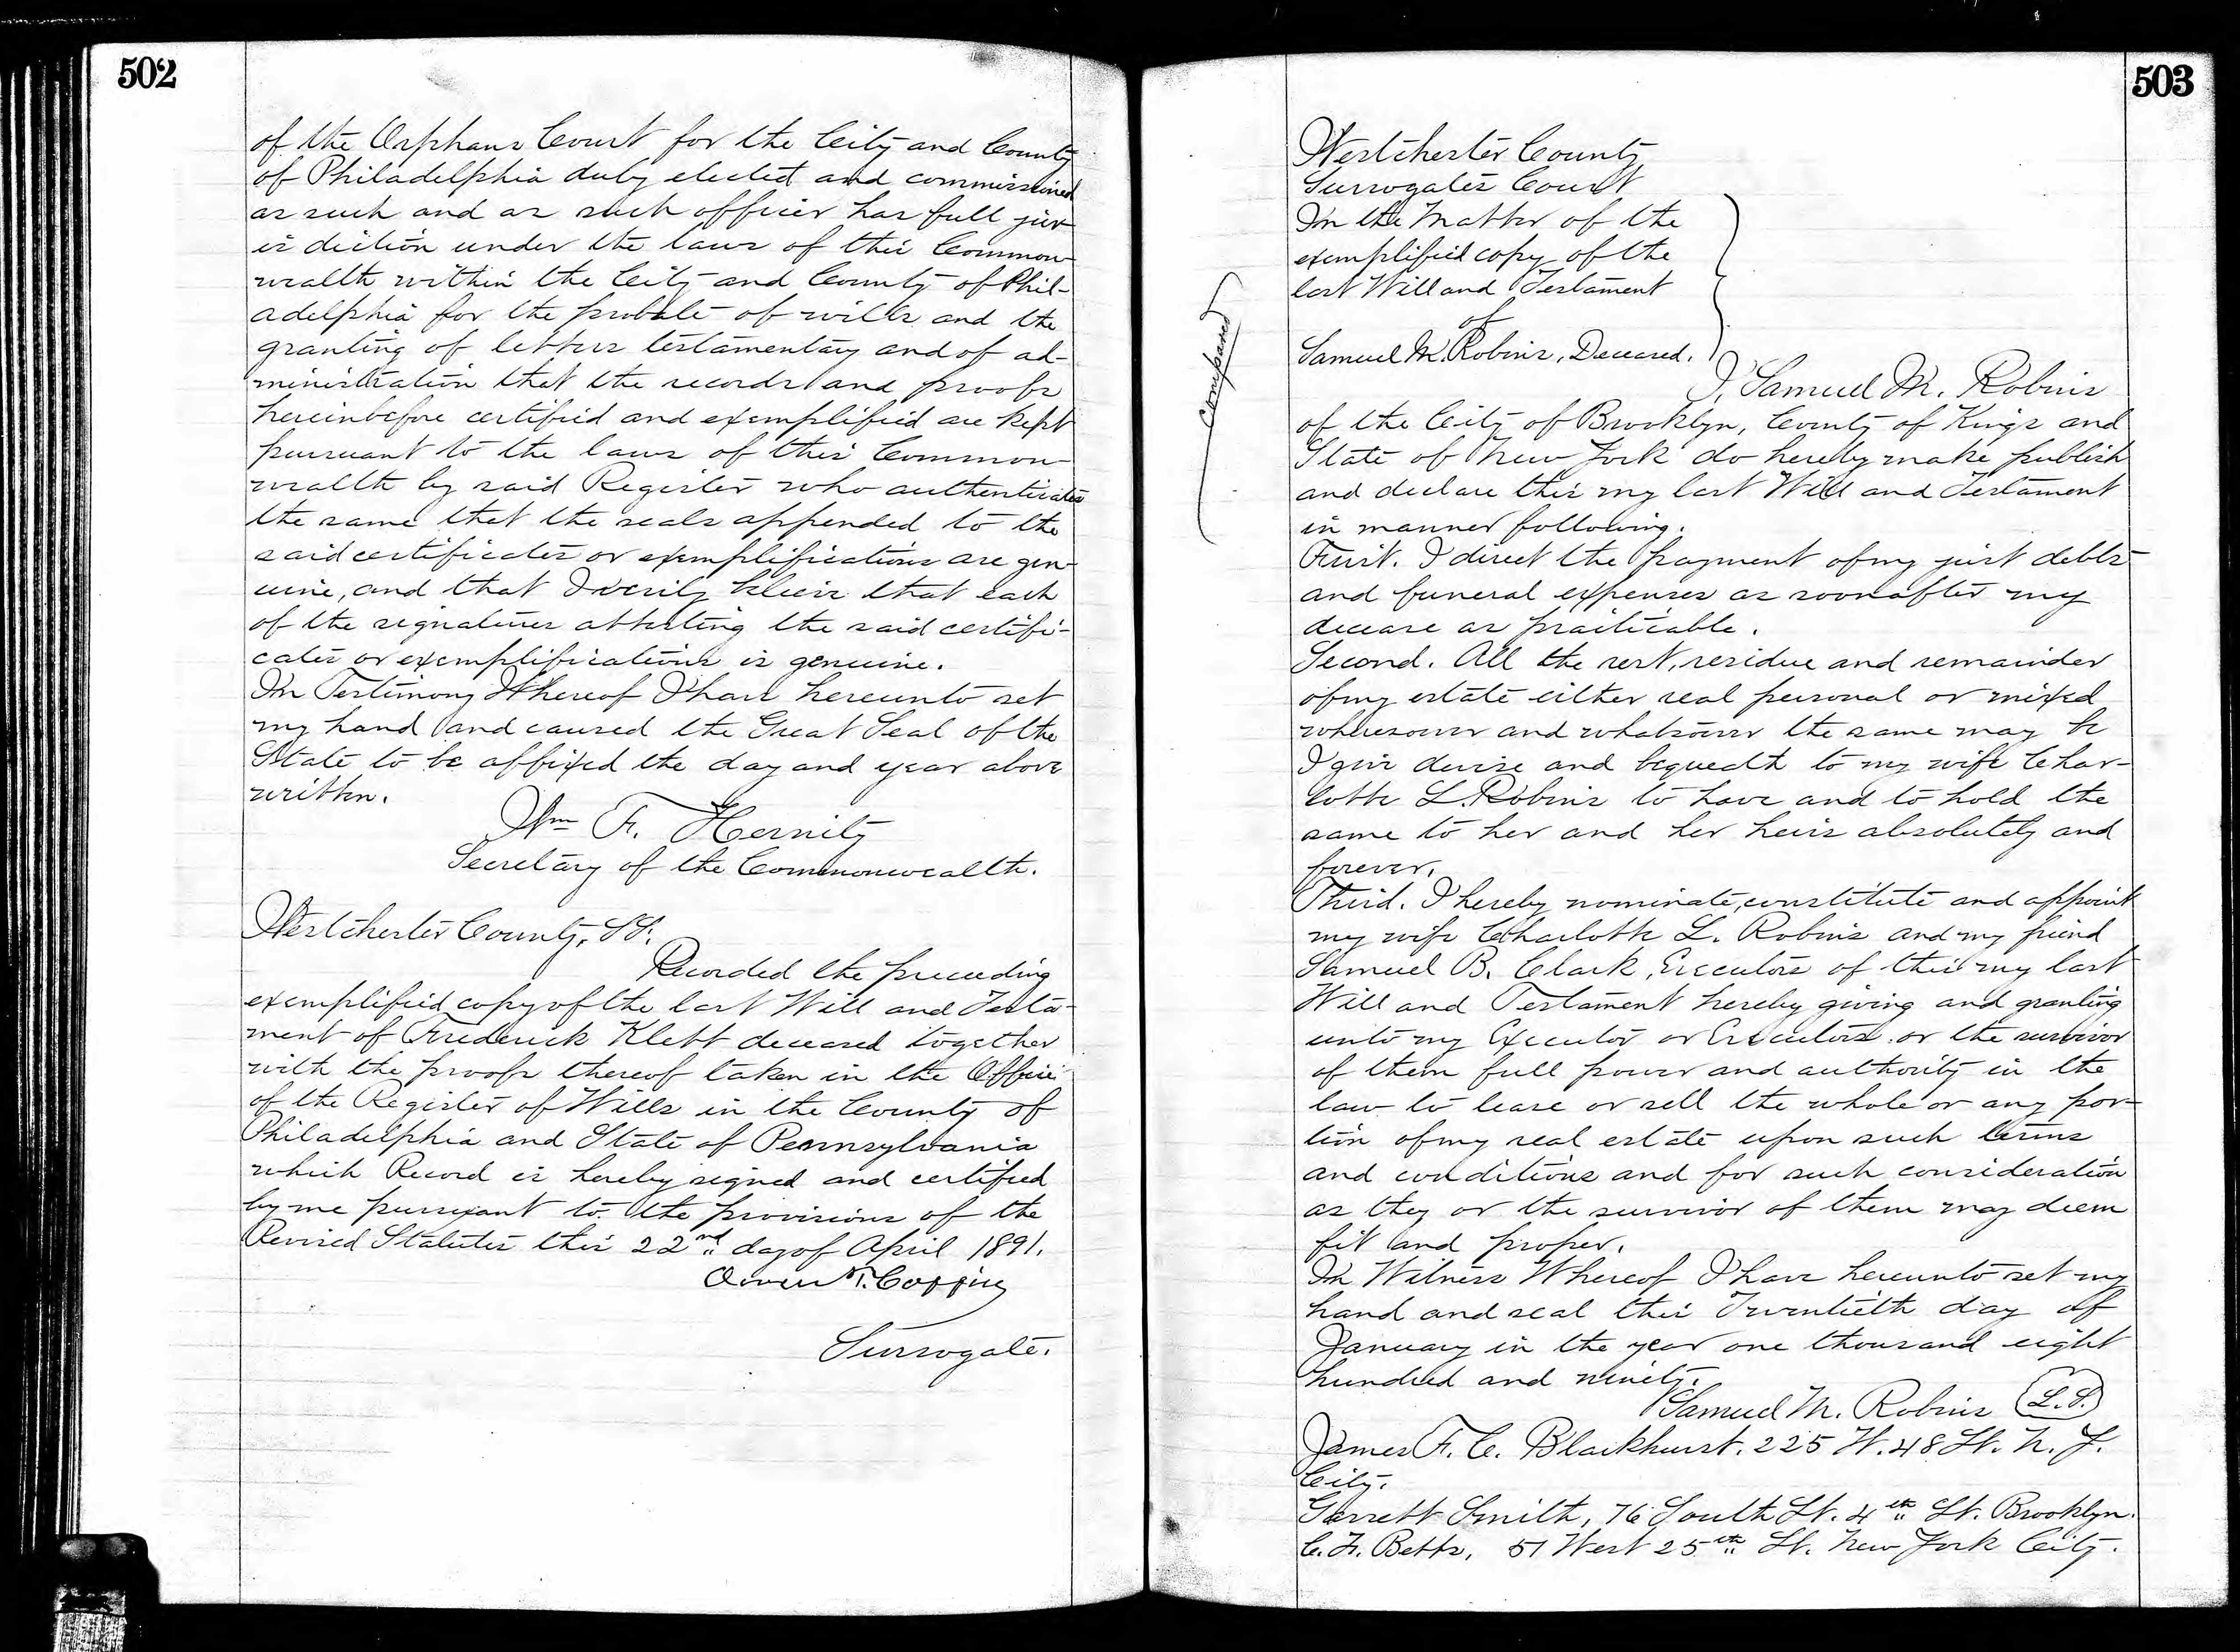 502
of the Orphans Court for the City and County
of Philadelphia duly elected and commissioned
as such and as such officer has full jur-
is diction under the laws of this Common-
wealth within the City and County of Phil-
adelphia for the probate of wills and the
granting of letters testamentary and of ad-
ministration that the records and proofs
hereinbefore certified and exemplified are kept
pursuant to the laws of this Common-
wealth by said Register who authenticates
the same that the seals appended to the
said certificates or exemplifications are gen-
uine, and that I verily believe that each
of the signatures attesting the said certifi-
cates or exemplifications is genuine.
In Testimony Whereof I have hereunto set
my hand and caused the Great Seal of the
State to be affixed the day and year above
written.
Wm F. Harrity
Secretary of the Commonwealth.
Westchester County, SS:
Recorded the preceding
exemplified copy of the last Will and Testa-
ment of Frederick Klett deceased together
with the proofs thereof taken in the Office
of the Register of Wills in the County of
Philadelphia and State of Pennsylvania
which Record is hereby signed and certified
by me pursuant to the provisions of the
Revised Statutes this 22nd day of April 1891.
Owen T. Coffin
Surrogate.
503
Westchester County
Surrogates Court
In the Matter of the
exemplified copy of the
last Will and Testament
of
Samuel M. Robins, Deceased.
compared
I, Samuel M. Robins
of the City of Brooklyn, County of Kings and
State of New York do hereby make publish
and declare this my last Will and Testament
in manner following.
First. I direct the payment of my just debts
and funeral expenses as soon after my
decease as practicable.
Second. All the rest, residue and remainder
of my estate either real personal or mixed
wheresoever and whatsoever the same may be
I give devise and bequeath to my wife Char-
lotte L. Robins to have and to hold the
same to her and her heirs absolutely and
forever.
Third. I hereby nominate, constitute and appoint
my wife Charlotte L. Robins and my friend
Samuel B. Clark, Executors of this my last
Will and Testament hereby giving and granting
unto my Executor or Executors or the survivor
of them full power and authority in the
law to lease or sell the whole or any por-
tion of my real estate upon such terms
and conditions and for such consideration
as they or the survivor of them may deem
fit and proper.
In Witness Whereof I have hereunto set my
hand and seal this Twentieth day of
January in the year one thousand eight
hundred and ninety.
Samuel M. Robins L.S.
James F. C. Blackhurst. 225 W. 48 St. N. Y.
City.
Garrett Smith, 76 South St. 4th St. Brooklyn.
C. F. Betts, 51 West 25th St. New York City.